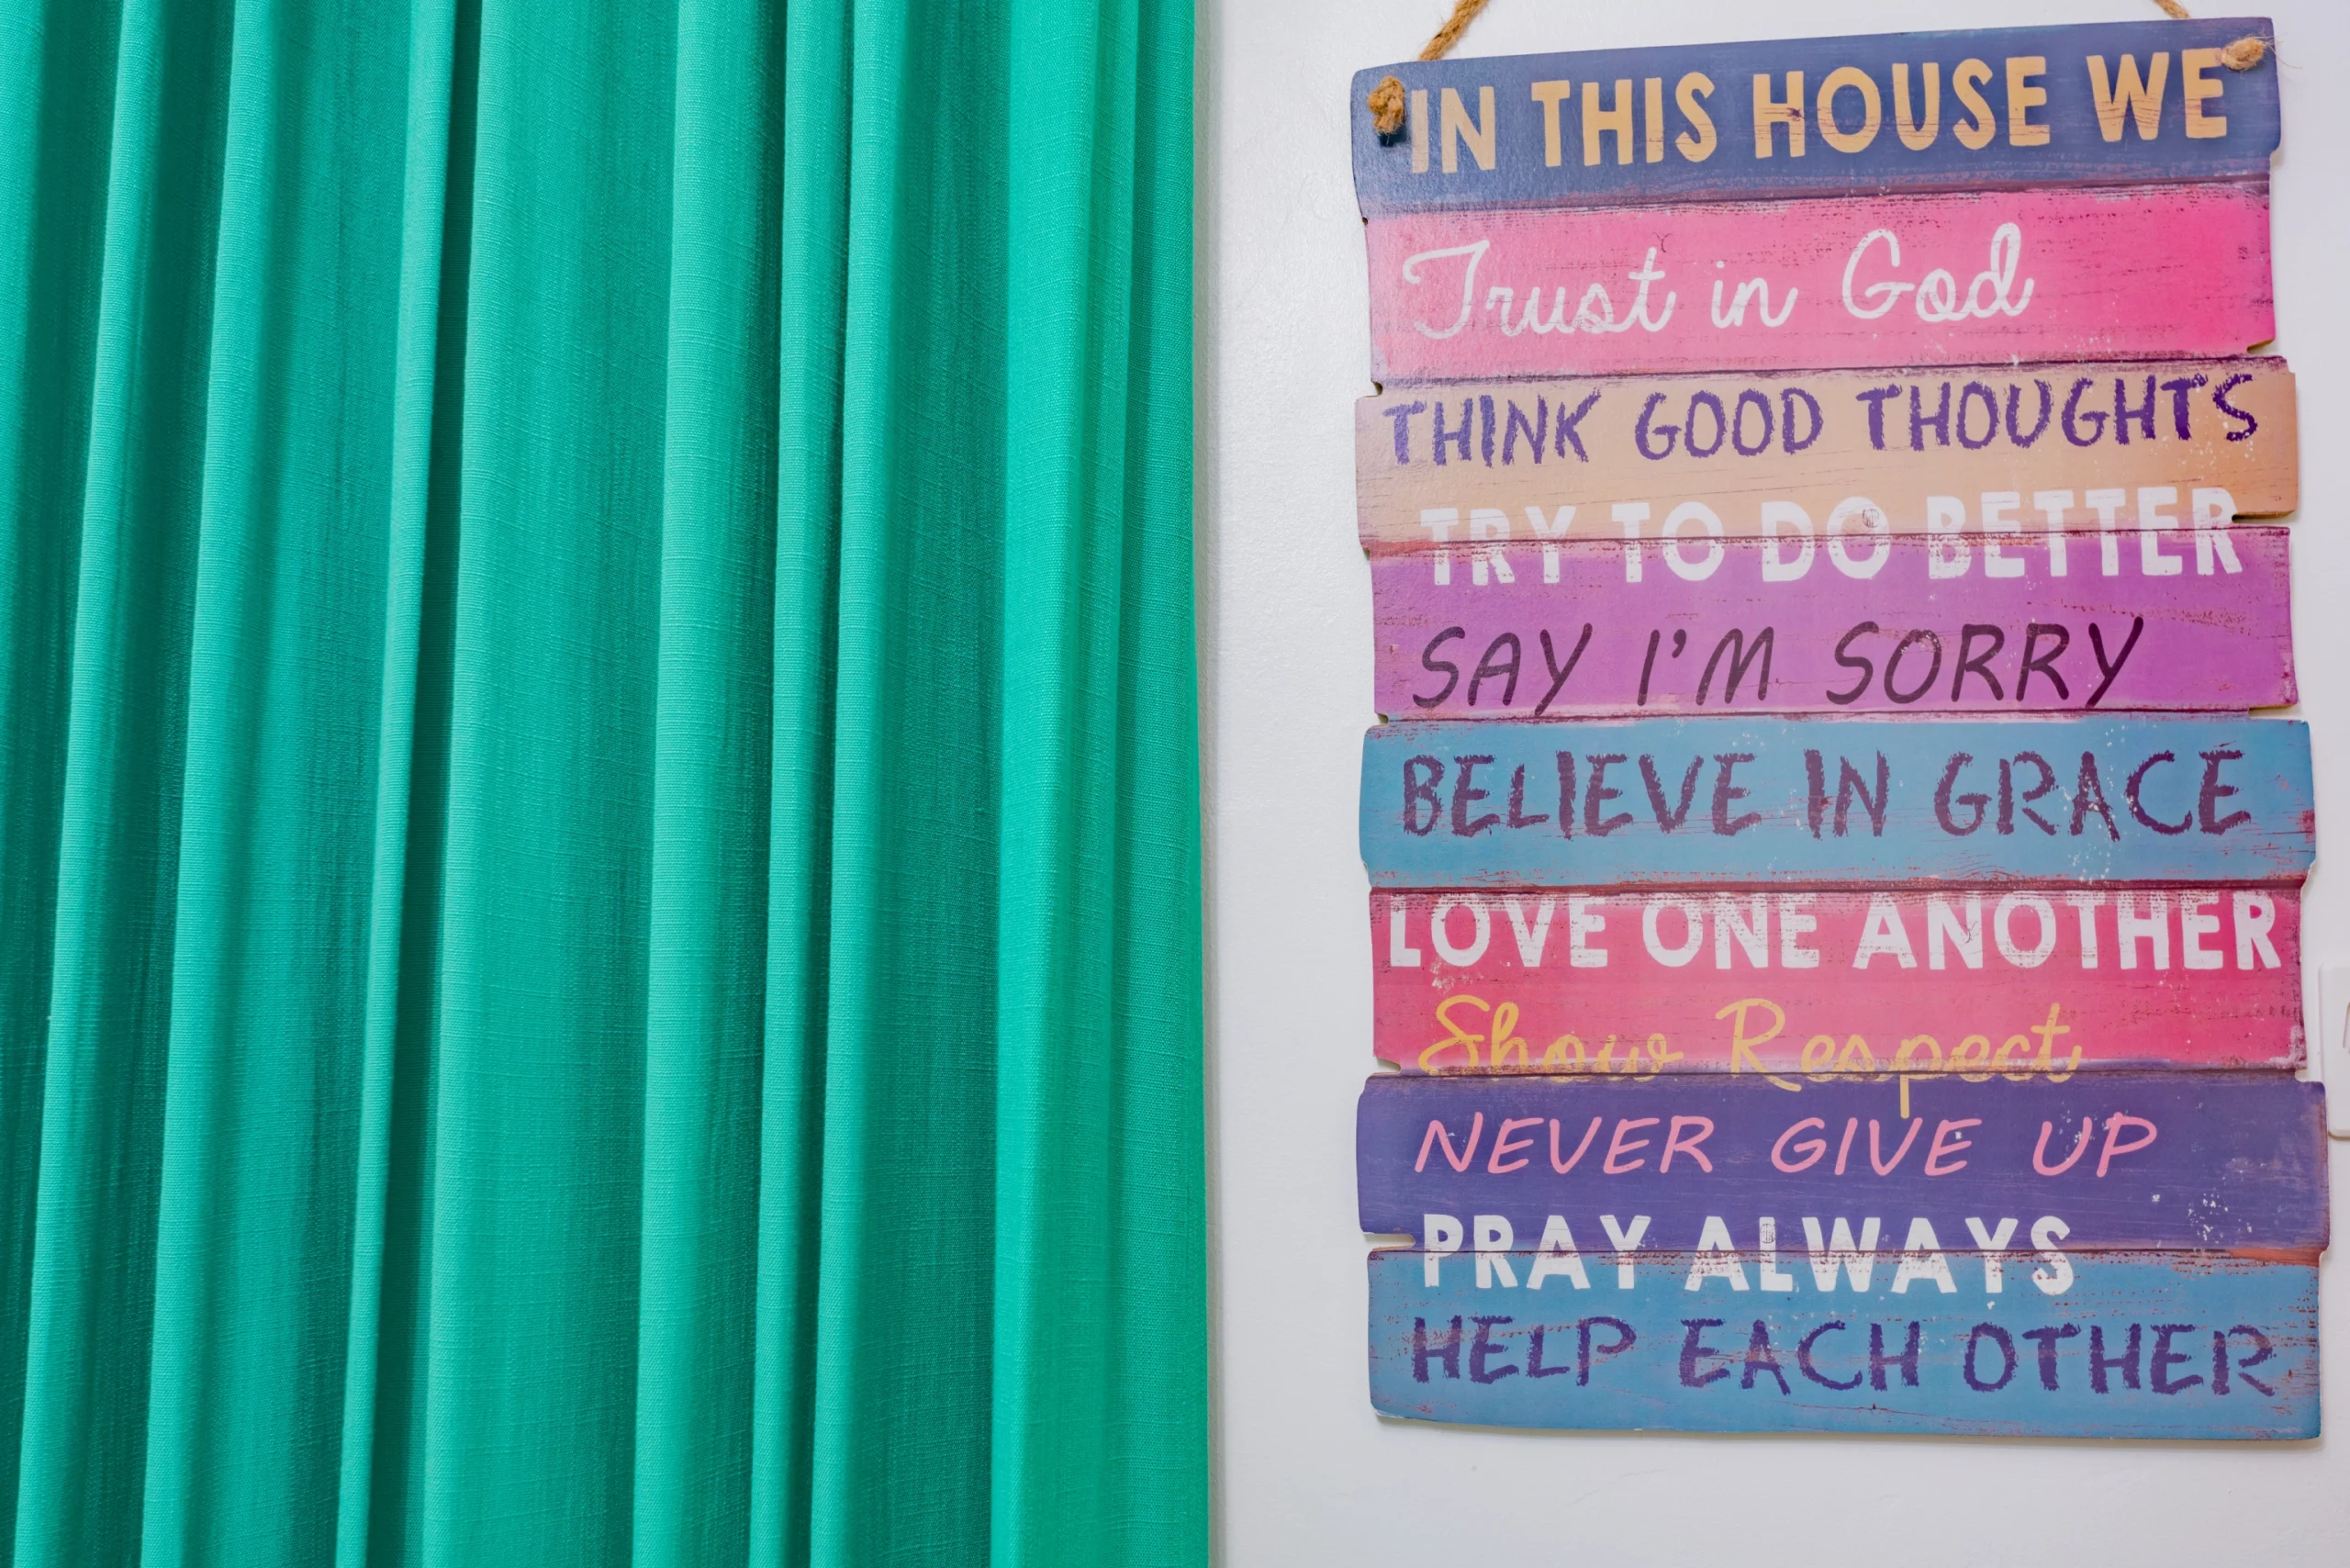 IN THIS HOUSE WE
Trust in God
THINK GOOD THOUGHTS
TRY TO DO BETTER
SAY I'M SORRY
BELIEVE IN GRACE
LOVE ONE ANOTHER
Show Respect
NEVER GIVE UP
PRAY ALWAYS
HELP EACH OTHER